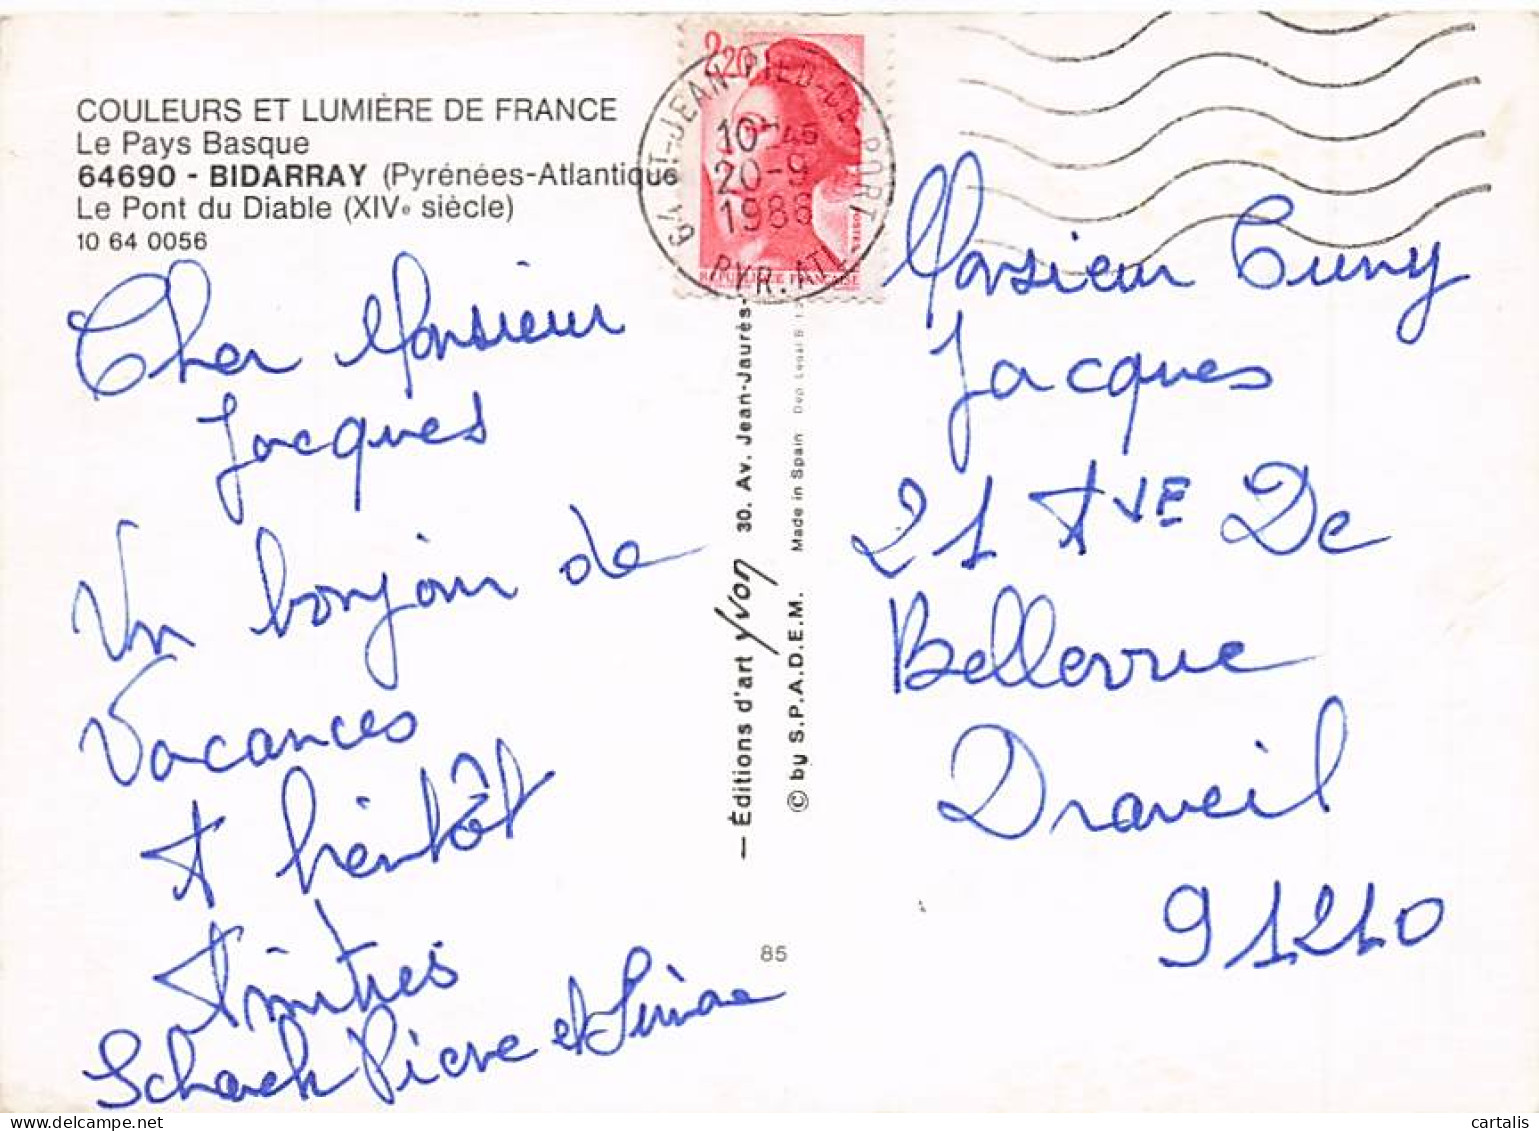 COULEURS ET LUMIÈRE DE FRANCE
Le Pays Basque
64690 - BIDARRAY (Pyrénées-Atlantique
Le Pont du Diable (XIVe siècle)
10 64 0056
Cher Monsieur
Jacques
Un bonjour de
Vacances
A bientôt
Amitiés
Schack Pierre et Simone
2,20
64 ST-JEAN-PIED-DE-PORT
10H45
20-9
1986
PYR. ATL.
REPUBLIQUE FRANÇAISE
— Éditions d'art yvon 30. Av. Jean-Jaurès
© by S.P.A.D.E.M. Made in Spain Dép. Legal B.
85
Monsieur Cuny
Jacques
21 AVE De
Bellevue
Draveil
91210
cartalis.com